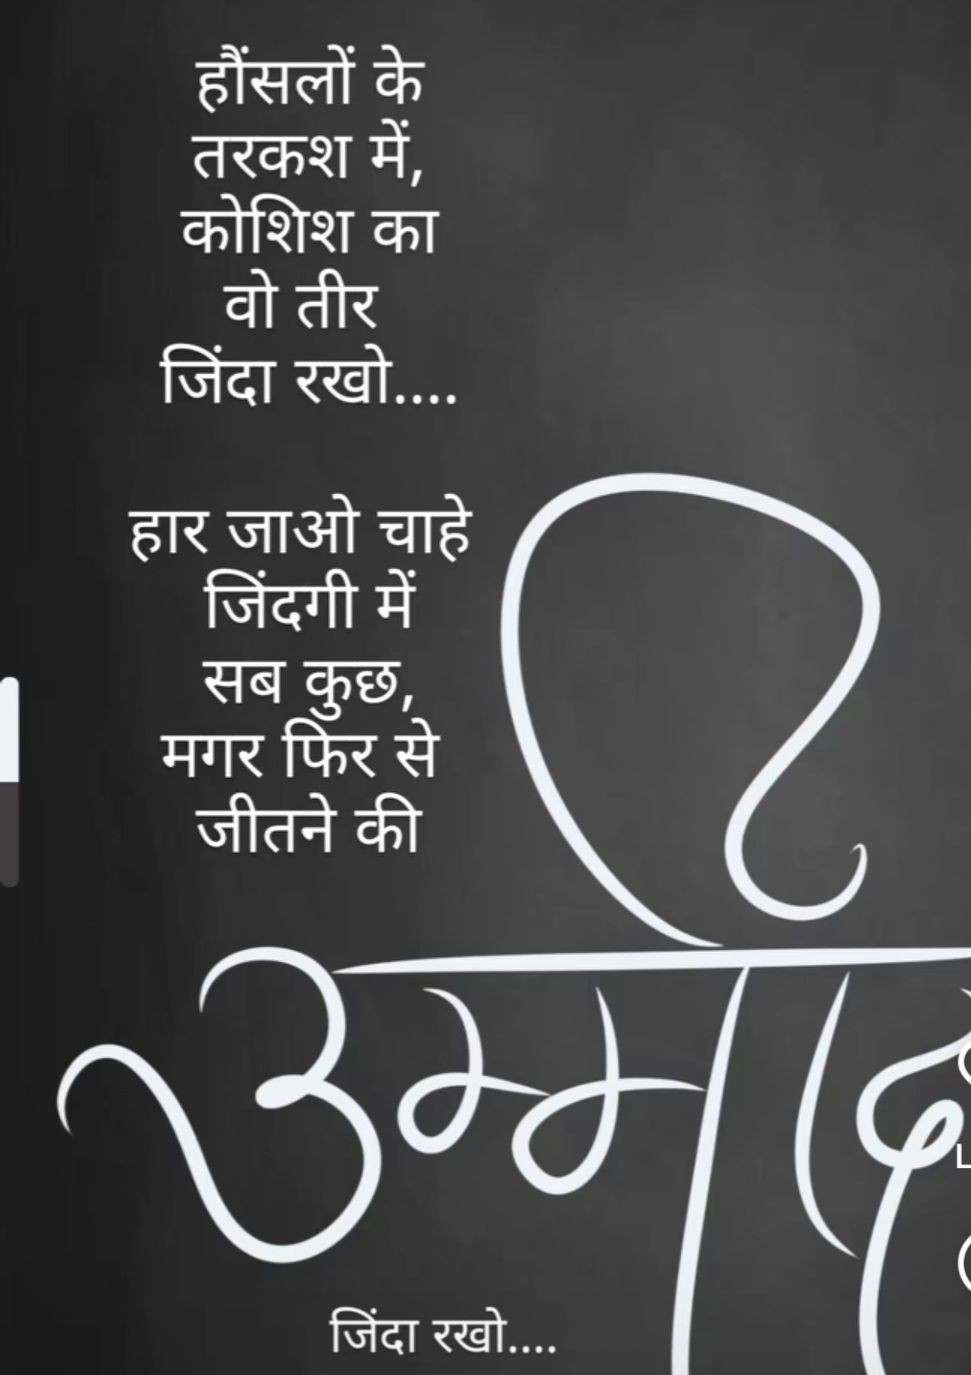 हौंसलों के
तरकश में,
कोशिश का
वो तीर
जिंदा रखो....
हार जाओ चाहे
जिंदगी में
सब कुछ,
मगर फिर से
जीतने की
उम्मीद
जिंदा रखो....